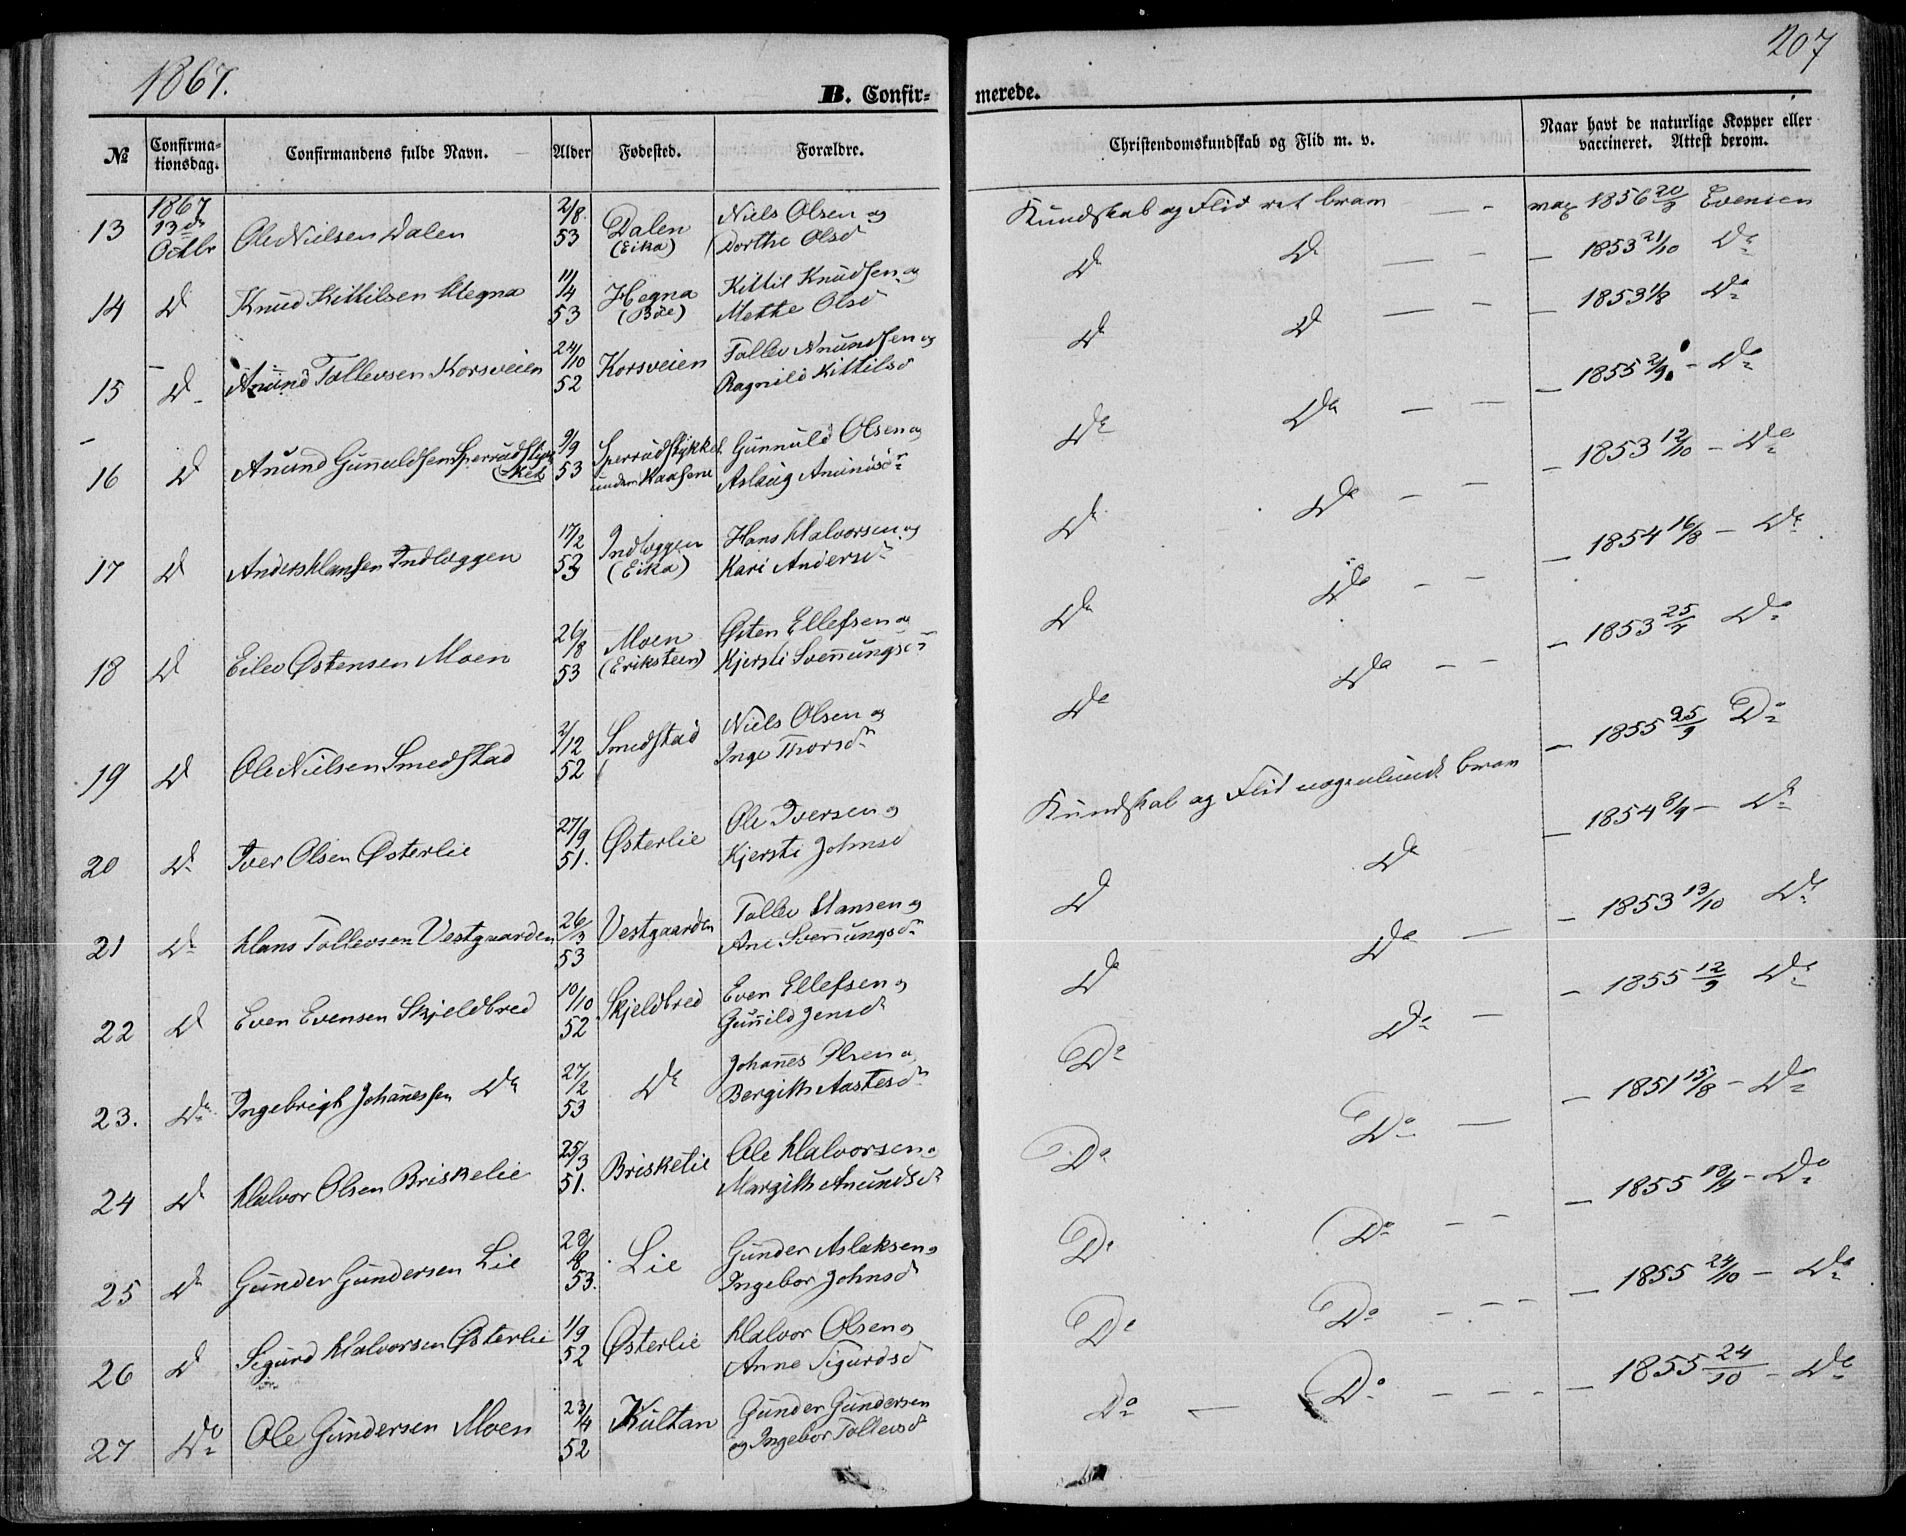 1867.
207
B. Confir-
merede.
№
Confirma-
tionsdag.
Confirmandens fulde Navn.
Alder
Fødested.
Forældre.
Christendomskundskab og Flid m. v.
Naar havt de naturlige Kopper eller
vaccineret. Attest derom.
13
1867
13de
Octbr
Ole Nielsen Dalen
2/8
53
Dalen
(Eika)
Niels Olsen og
Dorthe Olsd
Kundskab og Flid ret brav
vax 1856 20/9 Evensen
14
Do
Knud Kittilsen Hegna
11/4
53
Hegna
(Bøe)
Kittil Knudsen og
Methe Olsd
Do Do — -
— 1853 21/10 Do
15
Do
Anund Tollevsen Korsveien
24/10
52
Korsveien
Tollev Anundsen og
Ragnild Kittilsd
Do Do — -
— 1853 1/8 Do
16
Do
Anund Gunnuldsen Sperrudstyk
ket
9/9
53
Sperrudstykket
under Haasene
Gunnuld Olsen og
Aslaug Anundsdr
Do Do — —
— 1855 2/9 - Do
17
Do
Anders Hansen Indlæggen
17/2
53
Indlæggen
(Eika)
Hans Halvorsen og
Kari Andersd
Do Do — —
— 1853 12/10 - Do
18
Do
Eilev Østensen Moen
26/8
53
Moen
(Eriksteen)
Østen Ellefsen og
Kjersti Svennungsd
Do Do — —
— 1854 16/8 - Do
19
Do
Ole Nielsen Smedstad
2/12
52
Smedstad
Niels Olsen og
Inge Thorsd
Do Do — —
— 1853 Do
20
Do
Iver Olsen Østerlie
27/9
51.
Østerlie
Ole Iversen og
Kjersti Johnsd
Kundskab og Flid nogenlunde brav
— 1855 25/9 Do
21
Do
Hans Tollevsen Vestgaarden
26/3
53
Vestgaarden
Tollev Hansen og
Ane Svennungsd
Do Do
— 1854 8/9 - Do
22
Do
Even Evensen Skjeldbred
10/10
52
Skjeldbred
Even Ellefsen og
Gunnild Jensd
Do Do —
— 1853 13/10 Do
23.
Do
Ingebrigt Johannessen Do
27/2
53
Do
Johannes Olsen og
Bergith Aastesd
Do Do —
— 1855 12/9 Do
24
Do
Halvor Olsen Briskelie
25/3
51.
Briskelie
Ole Halvorsen og
Margith Anundsd
Do Do —
— 1851 15/8 - Do
25
Do
Gunder Gundersen Lie
29/8
53.
Lie
Gunder Aslaksen og
Ingebor Johnsd
Do Do — —
— 1855 18/9 - Do
26
Do
Sigurd Halvorsen Østerlie
1/9
52
Østerlie
Halvor Olsen og
Anne Sigurdsd
Do Do — — —
— 1855 24/10 — Do
27
Do
Ole Gundersen Moen
23/4
52
Kultan
Gunder Gundersen
og Ingebor Tollevsd
Do — Do — — —
— 1855 24/10 - Do